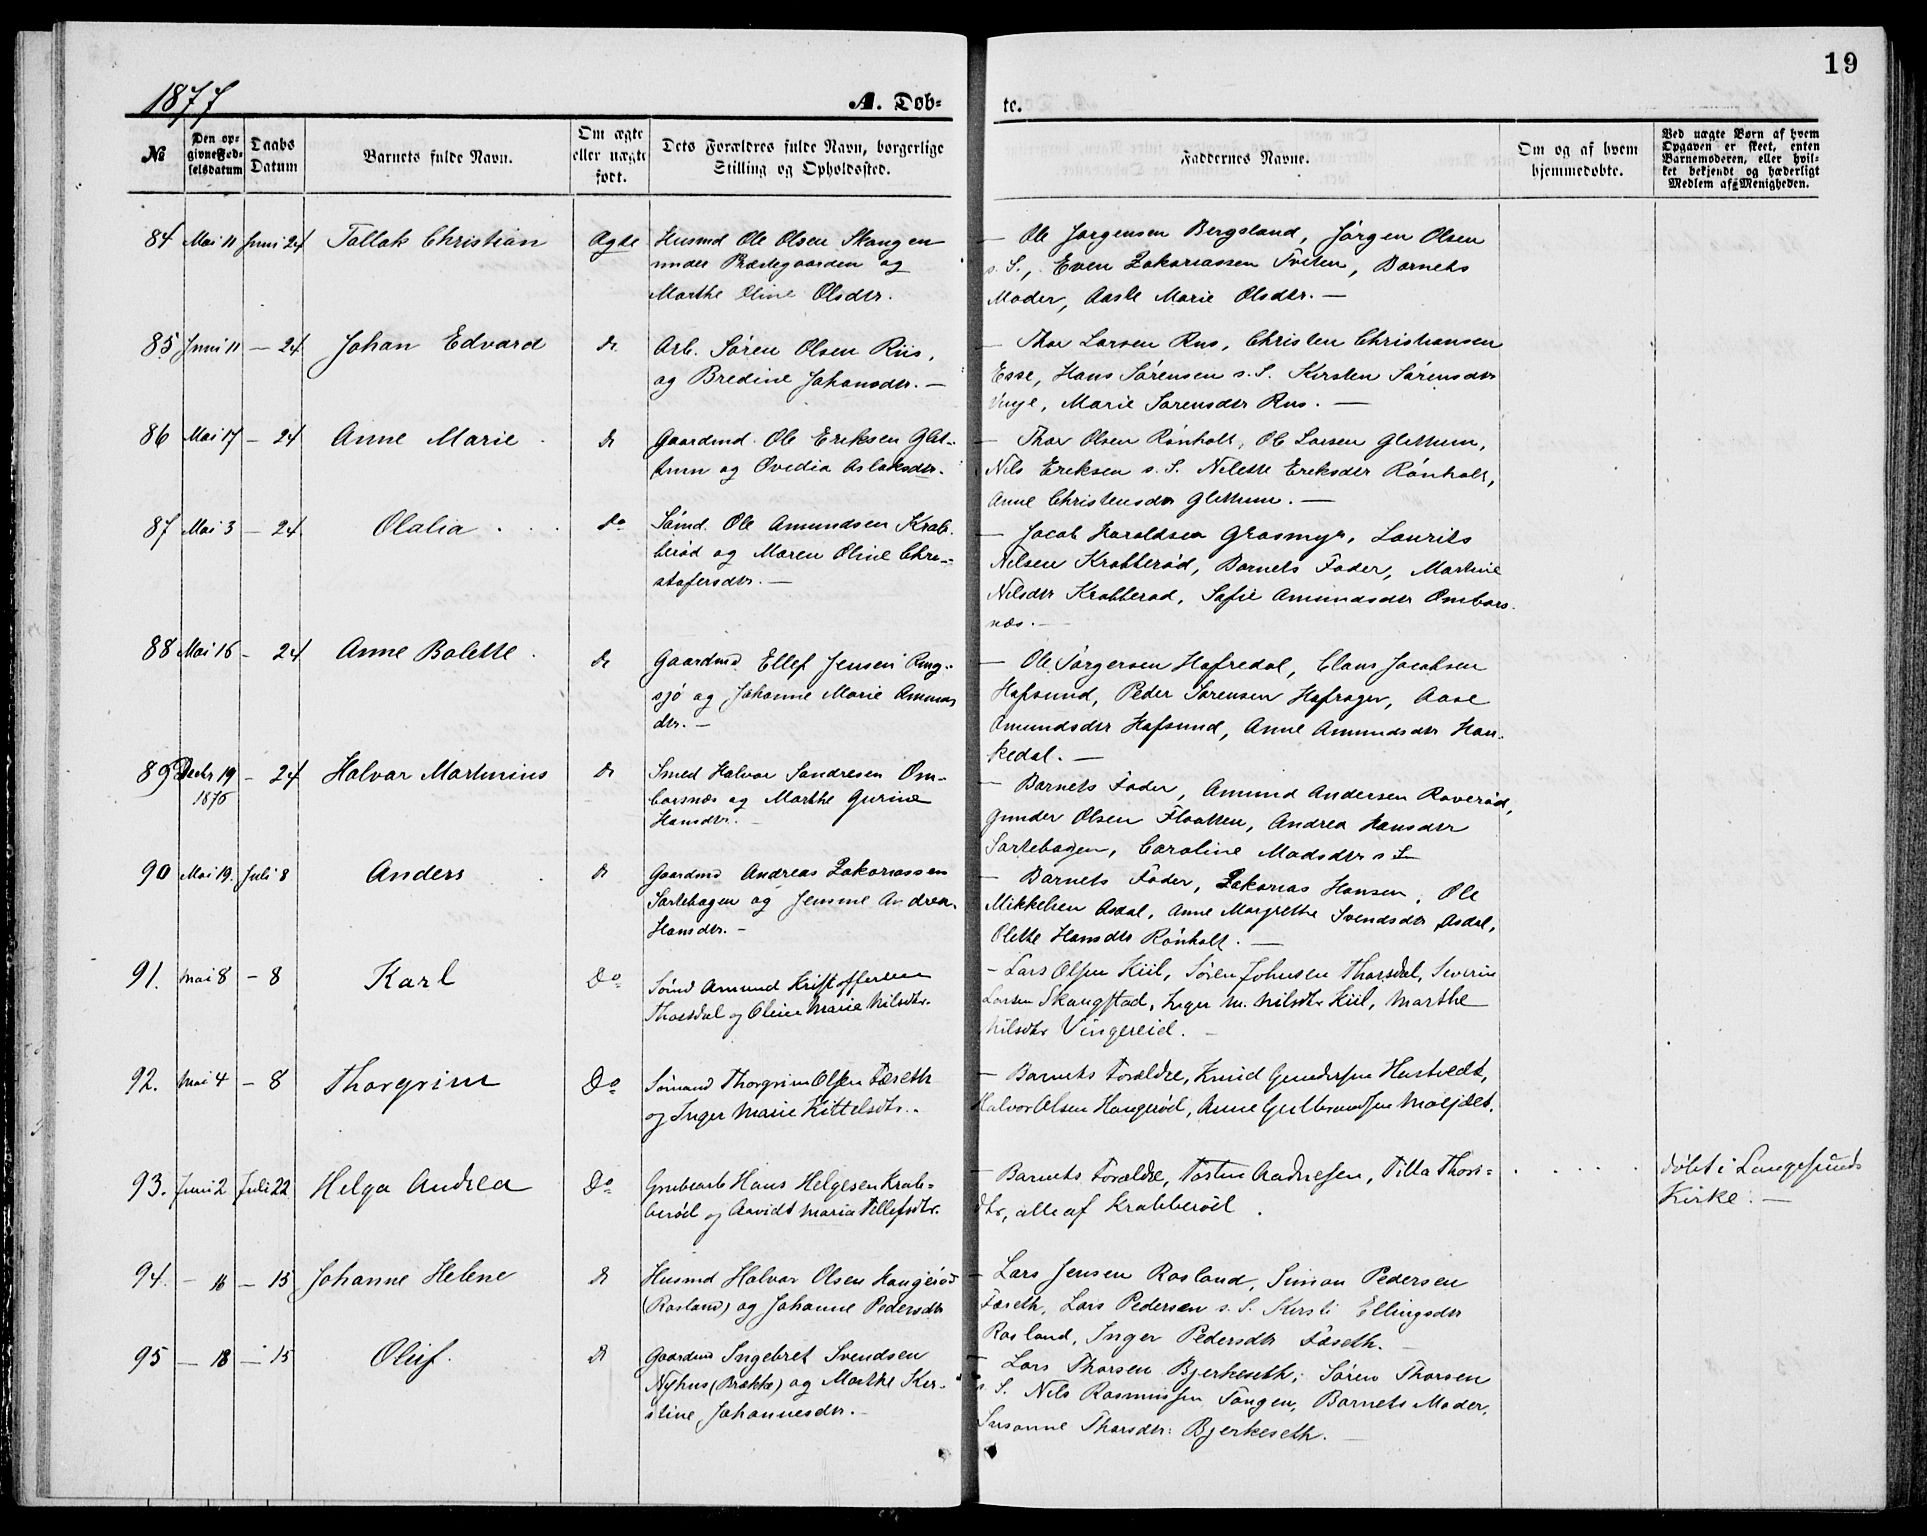 19
1877
A. Døb-
te.
№
Den op-
givne Fød-
selsdatum
Daabs
Datum
Barnets fulde Navn.
Om ægte
eller uægte
født.
Dets Forældres fulde Navn, borgerlige
Stilling og Opholdssted.
Faddernes Navne.
Om og af hvem
hjemmedøbte.
Ved uægte Børn af hvem
Opgaven er skeet, enten
Barnemoderen, eller hvil-
ket bekjendt og hæderligt
Medlem af Menigheden.
84 Mai 11 Juni 24 Tallak Christian Ægte Husmd Ole Olsen Skougen
under Præstegaarden og
Marthe Oline Olsdtr.
— Ole Jørgensen Bergsland, Jørgen Olsen
s. S., Even Zakariassen Tveten, Barnets
Moder, Aasle Marie Olsdtr. —
85 Juni 11 — 24 Johan Edvard do Arb. Søren Olsen Riis,
og Bredine Johansdtr. —
— Thor Larsen Riis, Christen Christiansen
Esse, Hans Sørensen s. S. Kirsten Sørensdtr
Marie Sørensdtr Riis. —
86 Mai 17 — 24 Anne Marie do Gaardmd. Ole Eriksen Glit-
tum og Ovedia Aslaksdtr.
— Thor Olsen Rønholt, Ole Larsen Glittum,
Nils Eriksen s. S. Nilette Eriksdtr Rønholt,
Anne Christensdtr Glittum. —
87 Mai 3 — 24 Olalia do Sømd. Ole Amundsen Krab-
berød og Maren Oline Chri-
stofersdtr. —
— Jacob Haroldsen Grasmyr, Laurits
Nilsen Krabberød, Barnets Fader, Martine
Nilsdtr Krabberød, Sofie Amundsdtr Ombors-
næs. —
88 Mai 16 — 24 Anne Bolette do Gaardmd Ellef Jensen Ring-
sjø og Johanne Marie Amunds
dtr. —
— Ole Jørgensen Hafredal, Claus Jacobsen
Hafsund, Peder Sørensen Hafrager, Aase
Amundsdtr Hafsund, Anne Amundsdtr Hau-
kedal. —
89 Decbr 19
1876 — 24 Halvor Martinius do Smed Halvor Sondresen Om-
borsnæs og Marthe Gurine
Hansdtr. —
— Barnets Fader, Amund Andersen Raverød,
Gunder Olsen Flaatten, Andrea Hansdtr
Sartebogen, Caroline Madsdtr s. S —
90 Mai 19. Juli 8 Anders do Gaardmd Andreas Zakariassen
Sartebogen og Jensine Andrea
Hansdtr. —
— Barnets Fader, Zakarias Hansen, Ole
Mikkelsen Asdal, Anne Margrethe Svendsdtr Asdal,
Olette Hansdtr Rønholt. —
91. Mai 8 — 8 Karl Do Sømd Amund Kristoffersen
Thorsdal og Oline Marie Nilsdtr.
— Lars Olsen Kiil, Søren Johnsen Thorsdal, Severin
Larsen Skougstad, Inger M. Nilsdtr Kiil, Marthe
Nilsdtr Vingereid. —
92. Mai 4 — 8 Thorgrim Do Sømand Thorgrim Olsen Fæseth
og Inger Marie Kittelsdtr.
— Barnets Forældre, Knud Gundersen Hustvedt,
Halvor Olsen Haugerød, Anne Gulbrandsen
93. Juni 2 Juli 22 Helga Andrea Do Grubearb Hans Helgesen Krab-
berød og Aavidt Maria Tellefsdtr.
— Barnets Forældre, Torsten Aadnesen, Tilla Thors-
dtr, alle af Krabberød.
døbt i Langesunds
Kirke. —
94. — 16 — 15 Johanne Helene do Husmd Halvor Olsen Haugerød
(Rosland) og Johanne Pedersdtr
— Lars Jensen Rosland, Simon Pedersen
Fæseth, Lars Pedersen s. S. Kirsti Ellingsdtr
Rosland, Inger Pedersdtr Fæseth. —
95 — 18 — 15 Oluf. do Gaardmd Ingebret Svendsen
Nyhus (Brække) og Marthe Kir-
stine Johannesdtr. —
— Lars Thorsen Bjerkeseth, Søren Thorsen
s. S. Nils Rasmussen Tangen, Barnets Moder,
Susanne Thorsdtr: Bjerkeseth. —